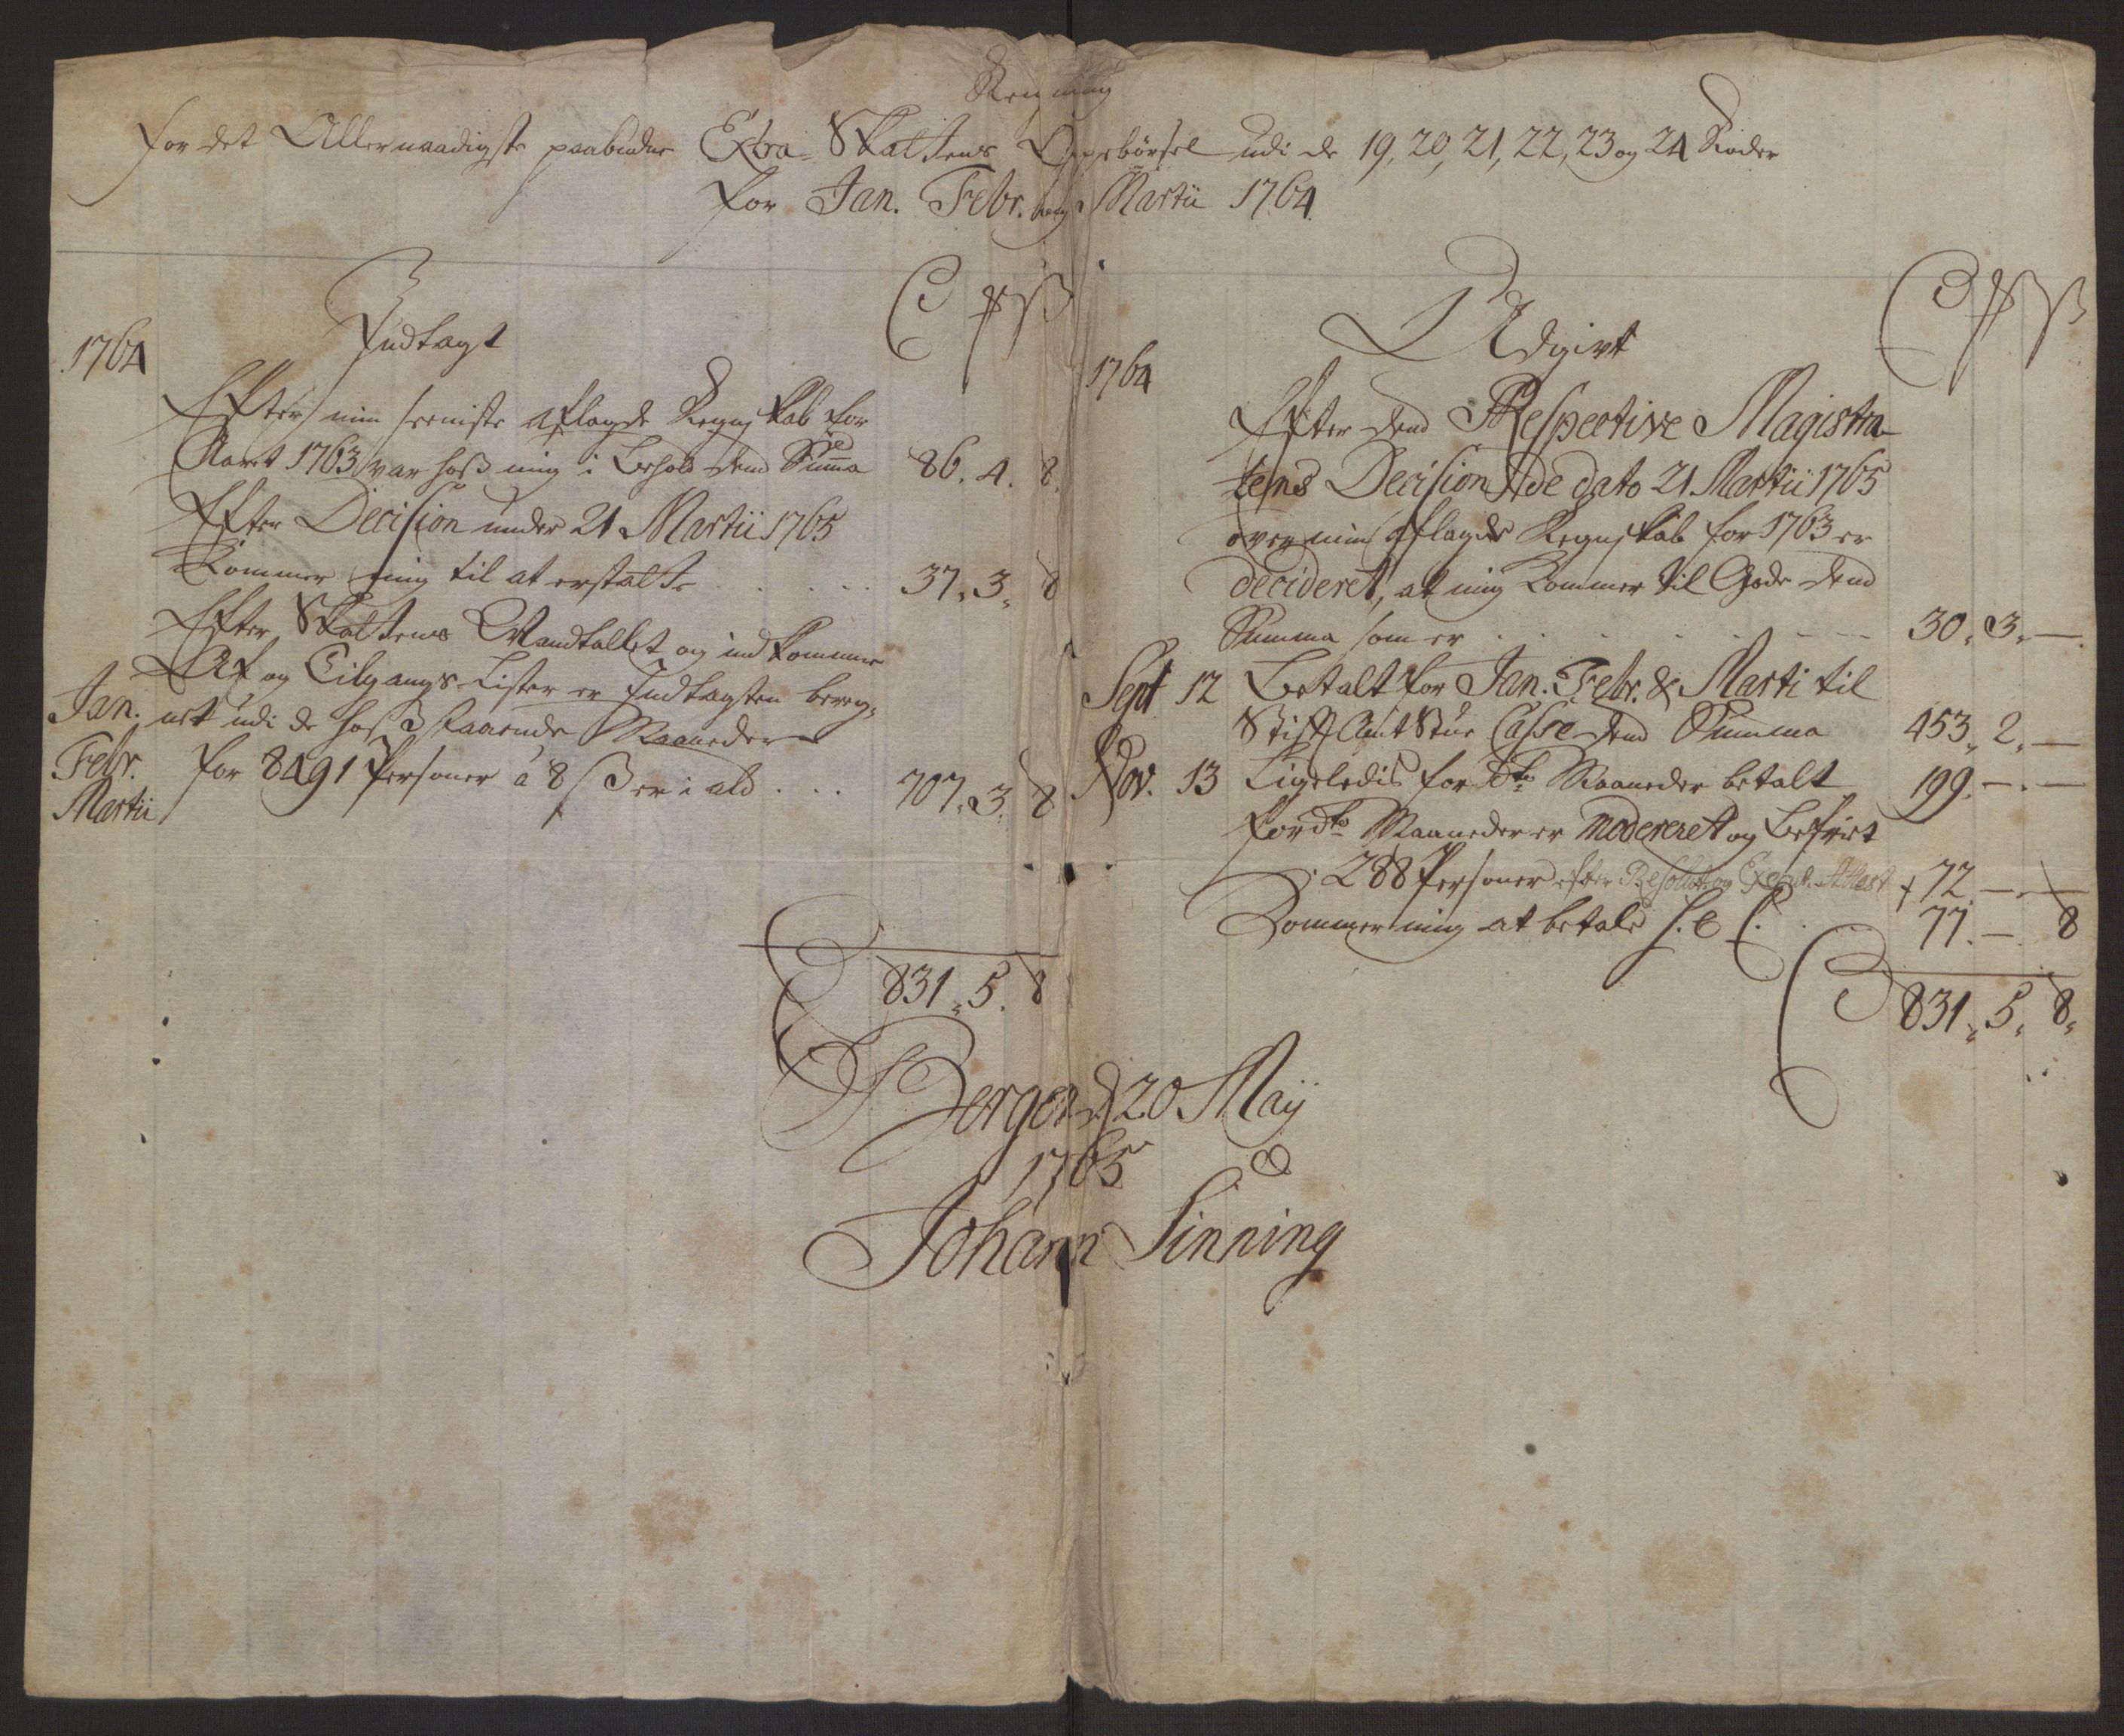 Regning
for det Allernaadigste paabudne Extra-Skattens Oppebörsel udi de 19, 20, 21, 22, 23 og 24 Roder
for Jan. Febr. og Martii 1764
Indtagt
1764
Efter min seeniste aflagde Regnskab for
Aaret 1763 var hoss mig i Behold dend Summa 86. 4. 8.
Efter Decision under 21 Martii 1765
Kommer mig til at erstatte . . . . 37. 3. 8
Efter Skattens Mandtallet og indkomne
Af og Tilgangs-Lister er Indtagten bereg-
Jan. net udi de hosstaaende Maaneder
Febr. for 8491 Personer á 8 ß er i alt . . . 707. 3. 8
Martii
831. 5. 8
Udgivt
1764
Efter dend Respective Magistra-
tens Decision de dato 21 Martii 1765
over min aflagde Regnskab for 1763 er
decideret, at mig kommer til Gode dend
Summa som er . . . . . 30. 3. —
Sept 12 Betalt for Jan. Febr. & Marti til
Stift Amt Stue Casse dend Summa 453. 2. —
Nov. 13 Ligeledis for dto Maaneder betalt 199. —. —
for dto Maaneder er modereret og befriet
288 Personer efter Resolut. og Attest 72. —. —
Kommer mig at betale S. E. C. . . . 77. —. 8
831. 5. 8.
Bergen d 20 Maij
1765
Johann Sinning